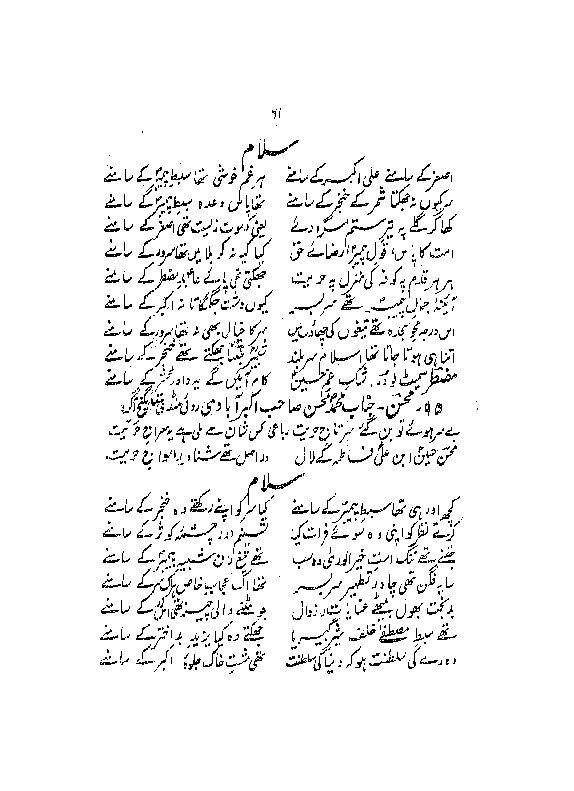 ۶۱
سلام
اصغر کے سامنے علی اکبر کے سامنے ہر غم خوشی تھا سبط پیمبر کے سامنے
سر کیوں نہ جھکتا شمر کے خنجر کے سامنے تھا پاس وعدہ سبط پیمبر کے سامنے
کھا کر گلے پہ تیر ستم مسکرا دئے یعنی کہ موت زیست تھی اصغر کے سامنے
امت کا پاس، قول پیمبر، رضائے حق کیا کیا نہ کربلا میں تھا سرور کے سامنے
ہر ہر قدم پہ کوفہ کی منزل پہ حریت جھکتی تھی پائے عابد مضطر کے سامنے
آئینہ جمال تھے سر بسر کیوں دشت جگمگاتا نہ اکبر کے سامنے
اس درجہ محو سجدہ تھے تیغوں کی چھاؤں میں سر کا خیال بھی نہ تھا سرور کے سامنے
اتنا ہی ہوتا جاتا تھا اسلام سر بلند شبیر جتنا جھکتے تھے خنجر کے سامنے
مضطر سمیٹ لو در اشک غم حسین کام آئیں گے یہ داور محشر کے سامنے
۵۵۔ محسن۔ جناب محمد محسن صاحب اکبر آبادی روئی منڈی شاہ گنج آگرہ
بے سر ہوئے تو بن گئے سر تاج حریت رباعی کس شان سے ملی ہے یہ معراج حریت
محسن حسین ابن علی فاطمہ کے لال دراصل تھے شناور امواج حریت
سلام
کچھ اور ہی تھا سبط پیمبر کے سامنے کیا سر کو اپنے رکھتے وہ خنجر کے سامنے
کرتے نظر کو اپنی وہ سوئے فرات کیا تسنیم اور چشمہ کوثر کے سامنے
جتنے تھے ننگ امت خیر الوری وہ سب تھے تیغ زن شبیہ پیمبر کے سامنے
سایہ فگن تھی چادر تطہیر سر بسر تھا اک حجاب خاص کے سامنے
بدبخت بھول بیٹھے عنایات ذوالجلال جو مٹنے والی چیز تھی ان کے سامنے
تھے سبط مصطفیٰ خلف شیر کبریا جھکتے وہ کیا یزید بد اختر کے سامنے
وہ رے کی سلطنت ہو کہ دنیا کی سلطنت تھی مشت خاک جلوۂ اکبر کے سامنے